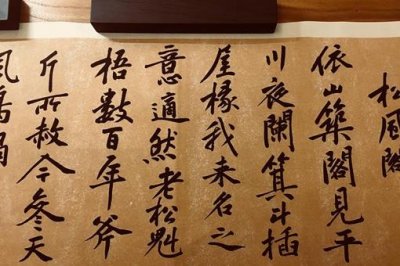 松風閣
依山築閣見平
川夜闌箕斗插
屋椽我来名之
意適然老松魁
梧數百年斧
斤所赦今參天
風鳴